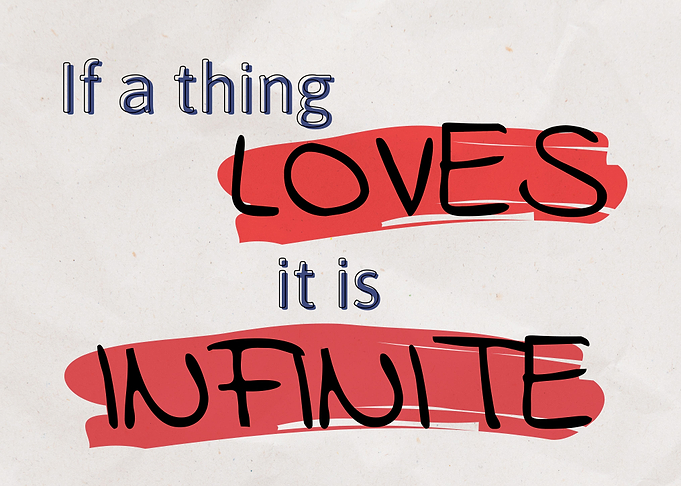 If a thing
LOVES
it is
INFINITE